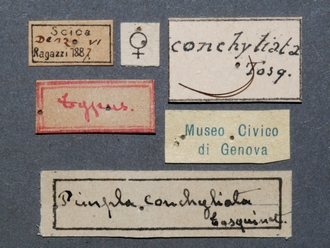 Scioa
Denzo VI
Ragazzi 1887
♀
conchyliata
Tosq.
Typus.
Museo Civico
di Genova
Pimpla conchyliata
Tosquinet